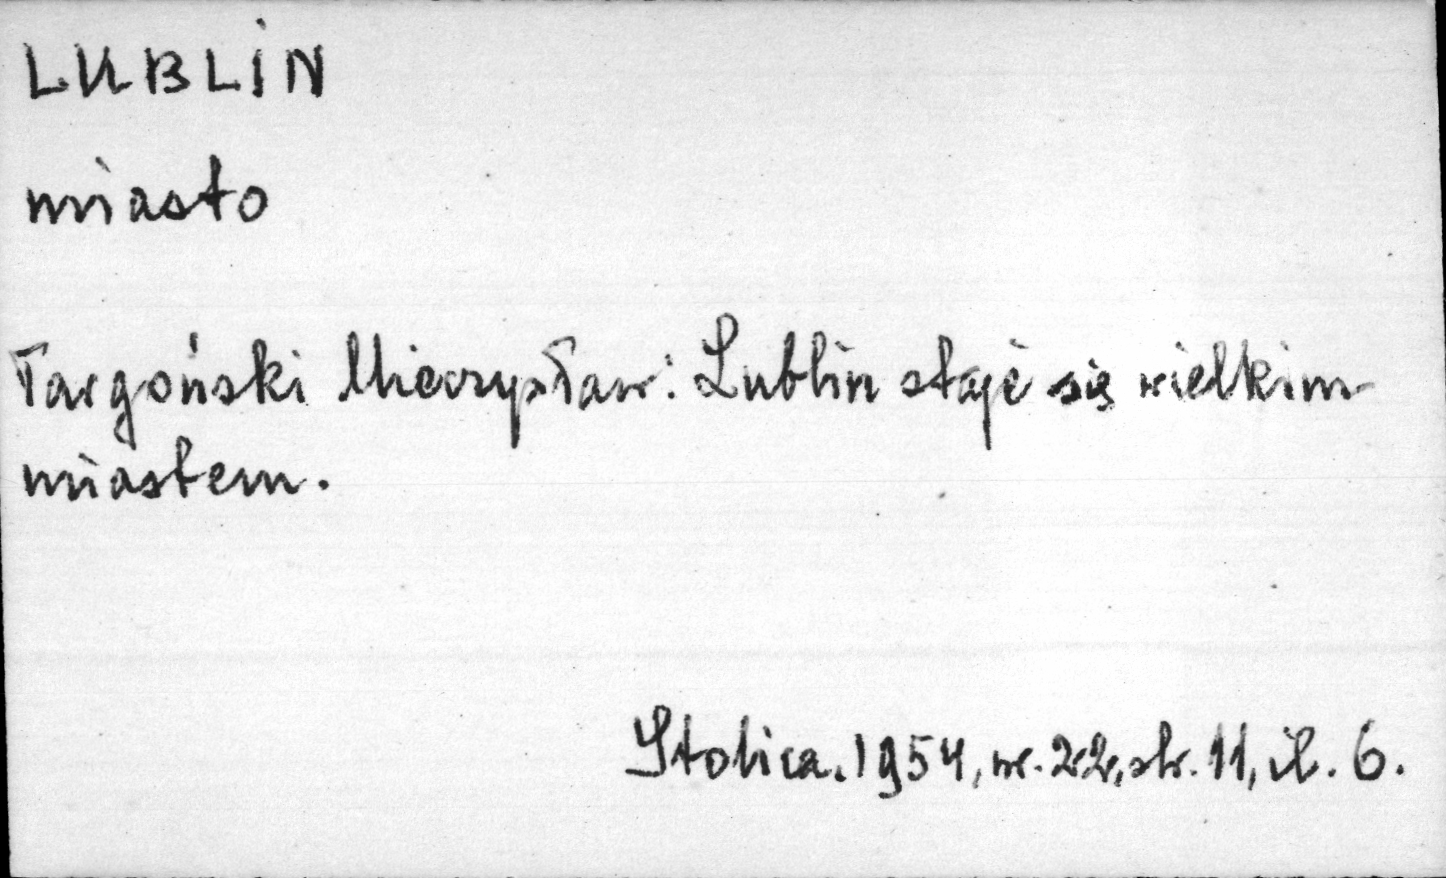 LUBLIN
miasto
Targoński Mieczysław: Lublin staje się wielkim
miastem.
Stolica. 1954, nr. 22, str. 11, il. 6.